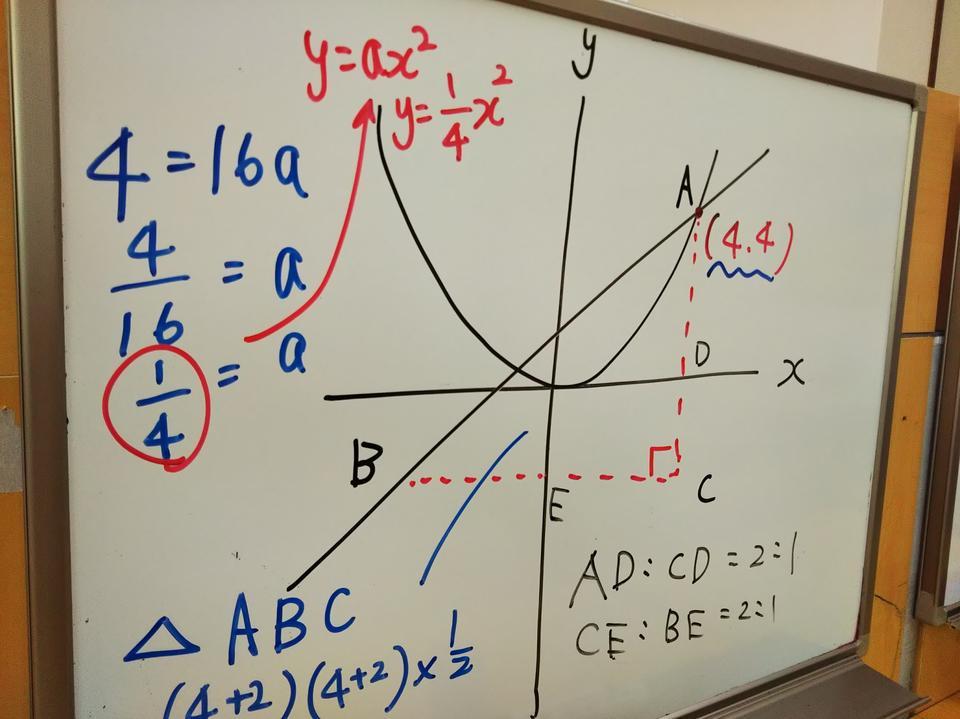 y=ax²
y=1/4x²
4=16a
4/16=a
1/4=a
y
A
(4.4)
D
x
B
E
C
AD:CD=2:1
CE:BE=2:1
△ABC
(4+2)(4+2)×1/2